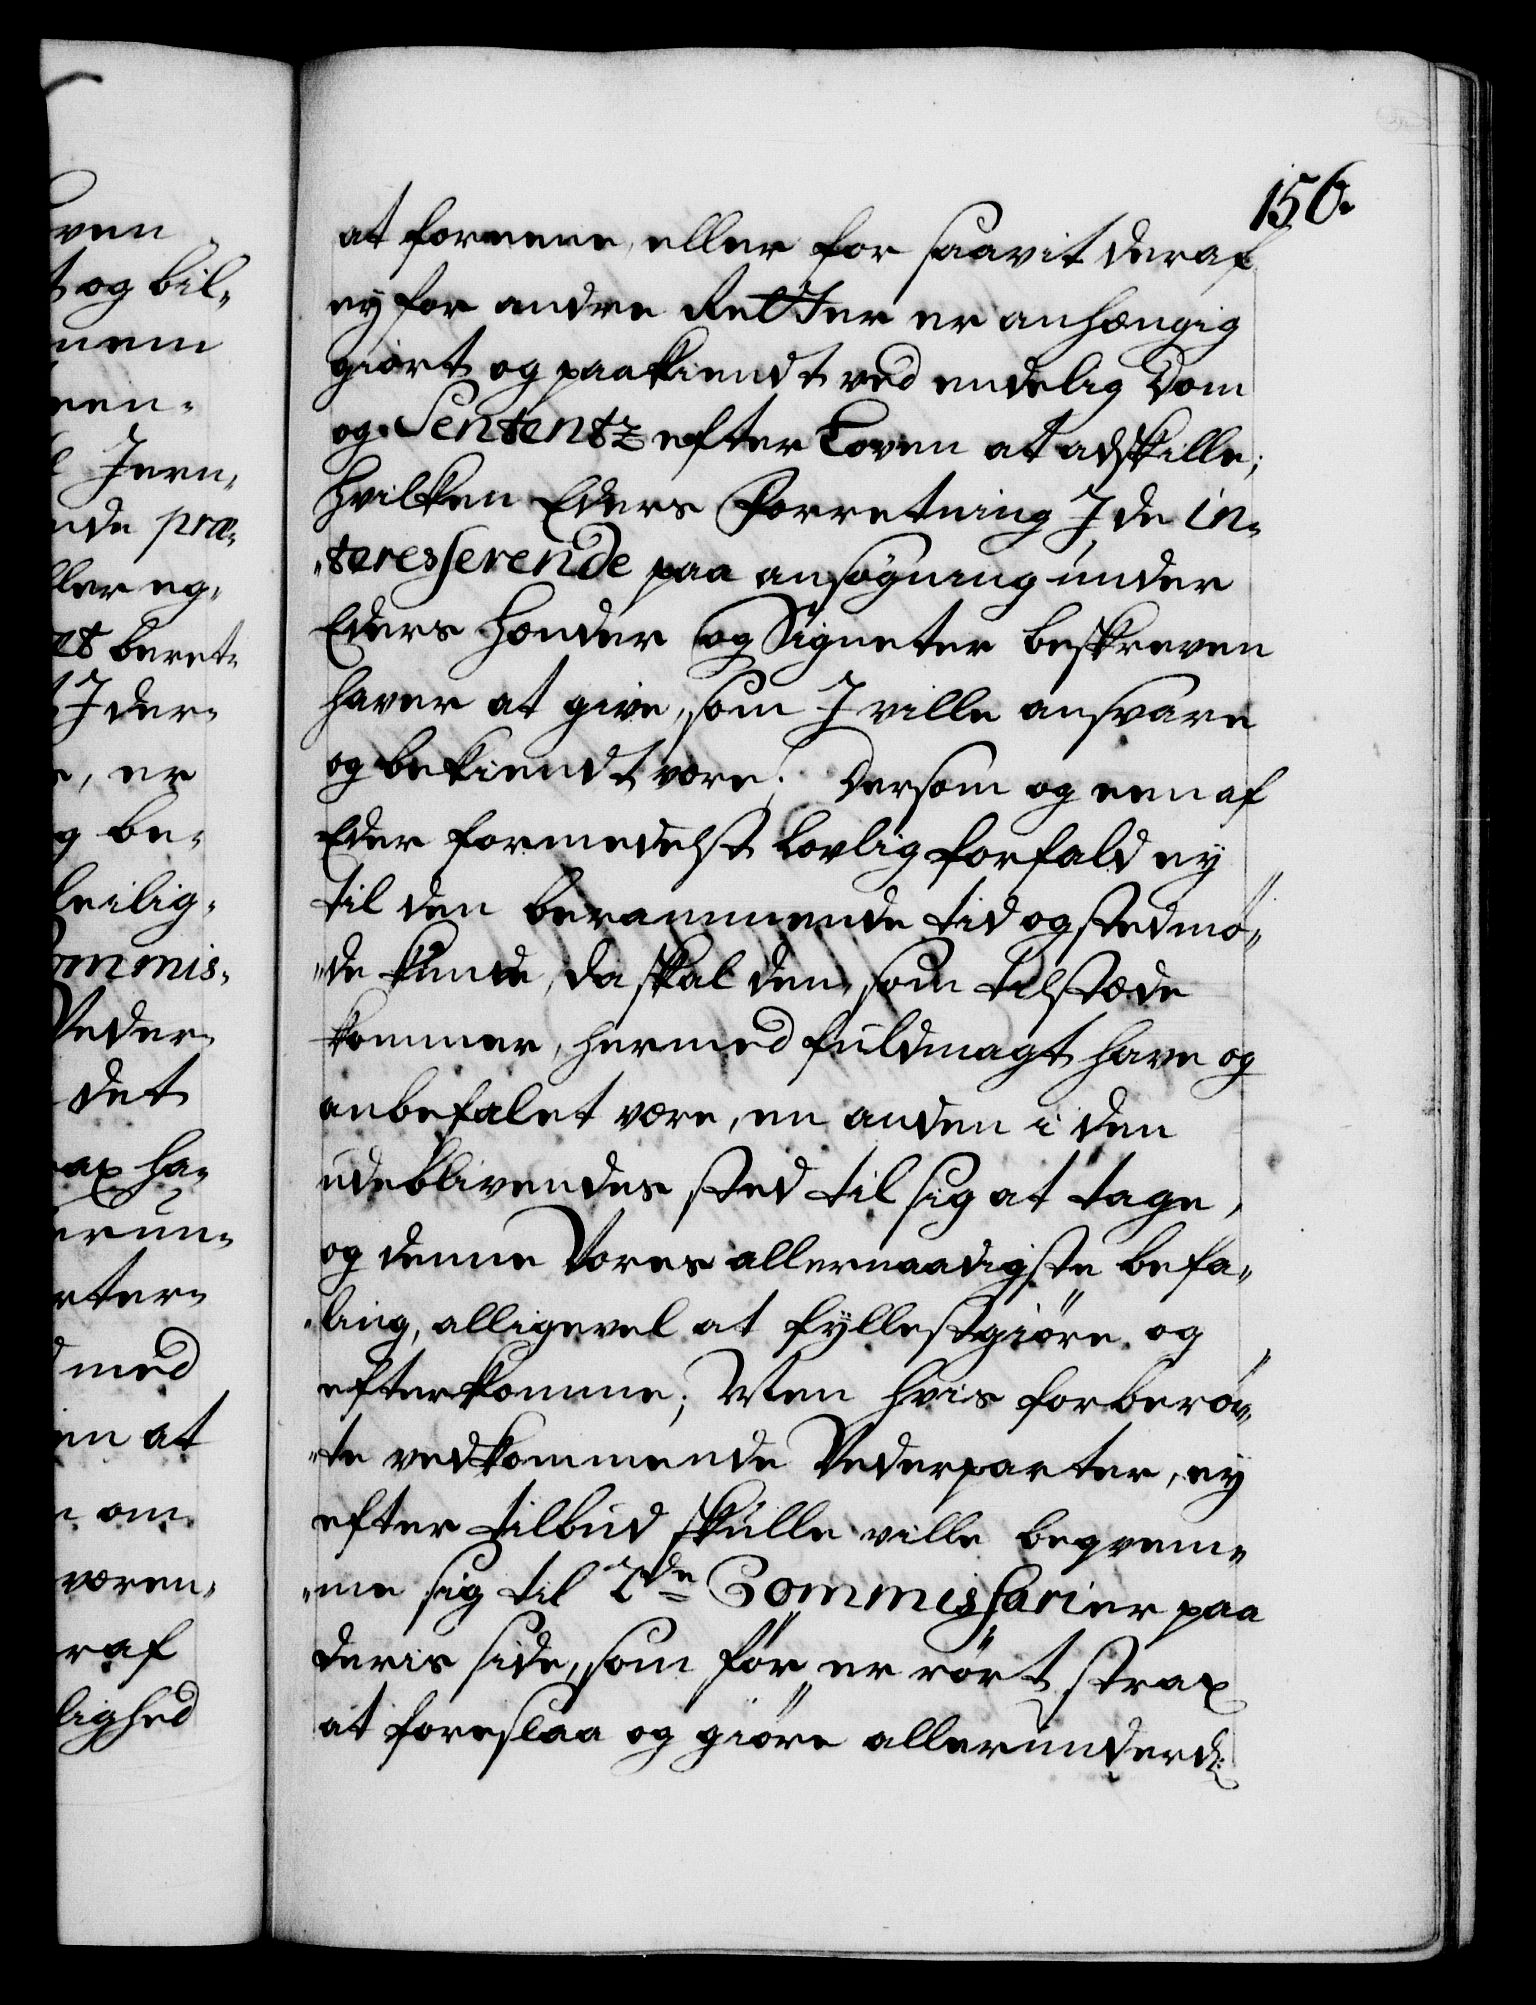 156.
at foreene, eller for saavit deraf
ey for andre Retter er anhængig
giort og paakiendt ved endelig Dom
og Sententz efter Loven at adskille;
hvilken Eders Forretning J de in-
teresserende paa ansøgning under
Eders Hænder og Signeter beskreven
haver at give, som J ville ansvare
og bekiendt være; Dersom og een af
Eder formedelst lovlig forfald ey
til den berammende tid og sted mø-
de kunde, da skal den, som tilstæde
kommer, hermed fuldmagt have og
anbefalet være, en anden i den
udeblivendes sted til sig at tage,
og denne Vores allernaadigste befa-
ling, alligevel at fyllestgiøre og
efterkomme; Men hvis forberør-
te vedkommende Vederparter, ey
efter tilbud skulle ville beqvem-
me sig til 2de Commissarier paa
deris side, som før er rørt strax
at foreslaa og giøre allerunderd:
ven
t og bil-
nem
een-
Jern-
nde præ-
ller eg-
et beret-
t J der-
, er
g be-
leilig-
ommis-
Veder-
det
ax ha-
erun-
rter-
med
en at
om
væren-
raf
lighed